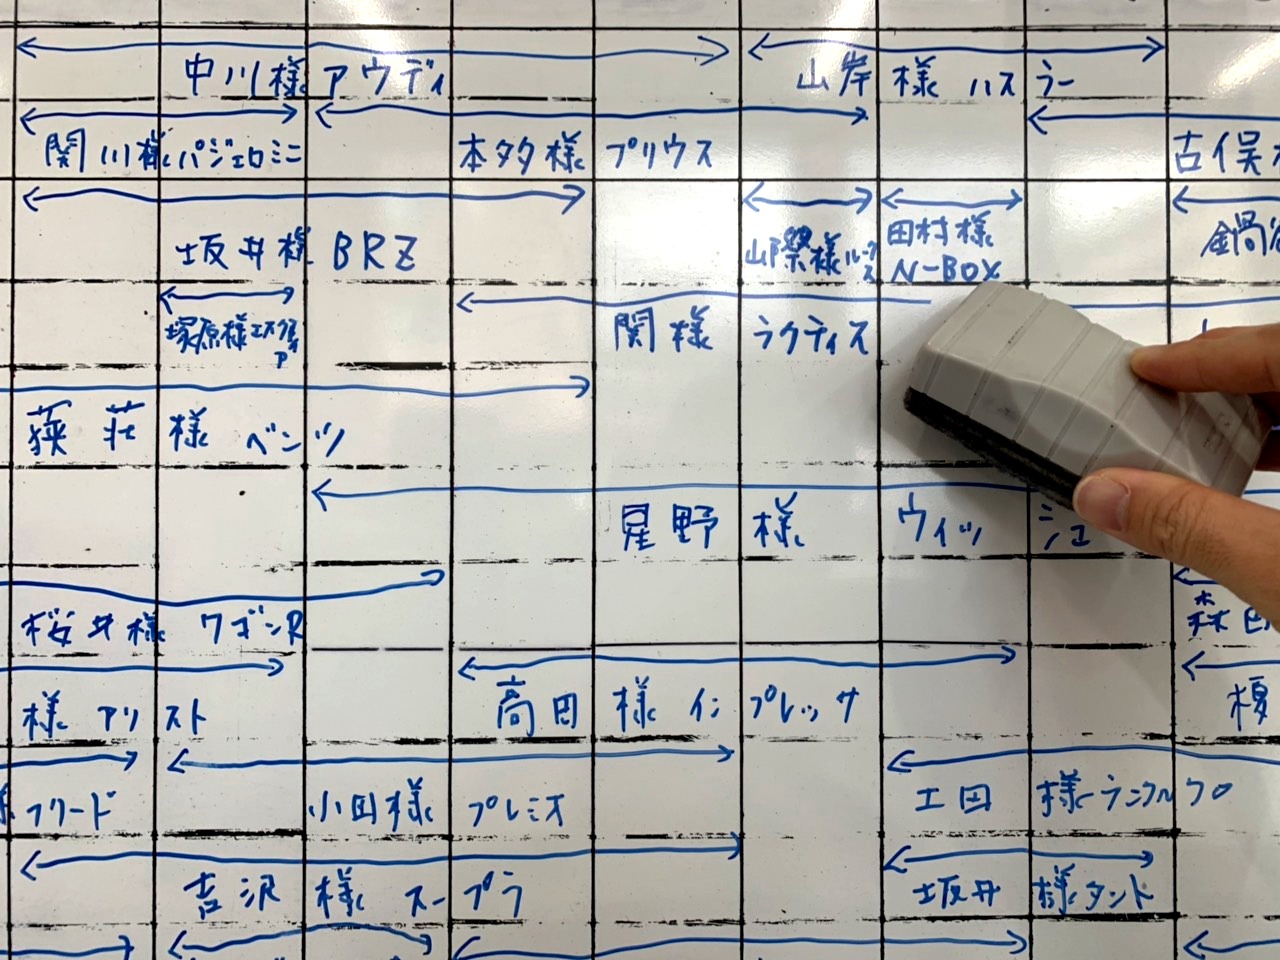 中川様 アウディ 山岸様 ハスラー
関川様 パジェロミニ 本多様 プリウス 古俣
坂井様 BRZ 山際様 ルークス 田村様 N-BOX 鍋谷
塚原様 エスクァイア 関様 ラクティス
狭荘様 ベンツ
星野様 ウィッシュ
桜井様 ワゴンR 森田
様 アリスト 高田様 インプレッサ 榎
フリード 小田様 プレミオ 土田様 ランクルプロ
吉沢様 スープラ 坂井様 タント